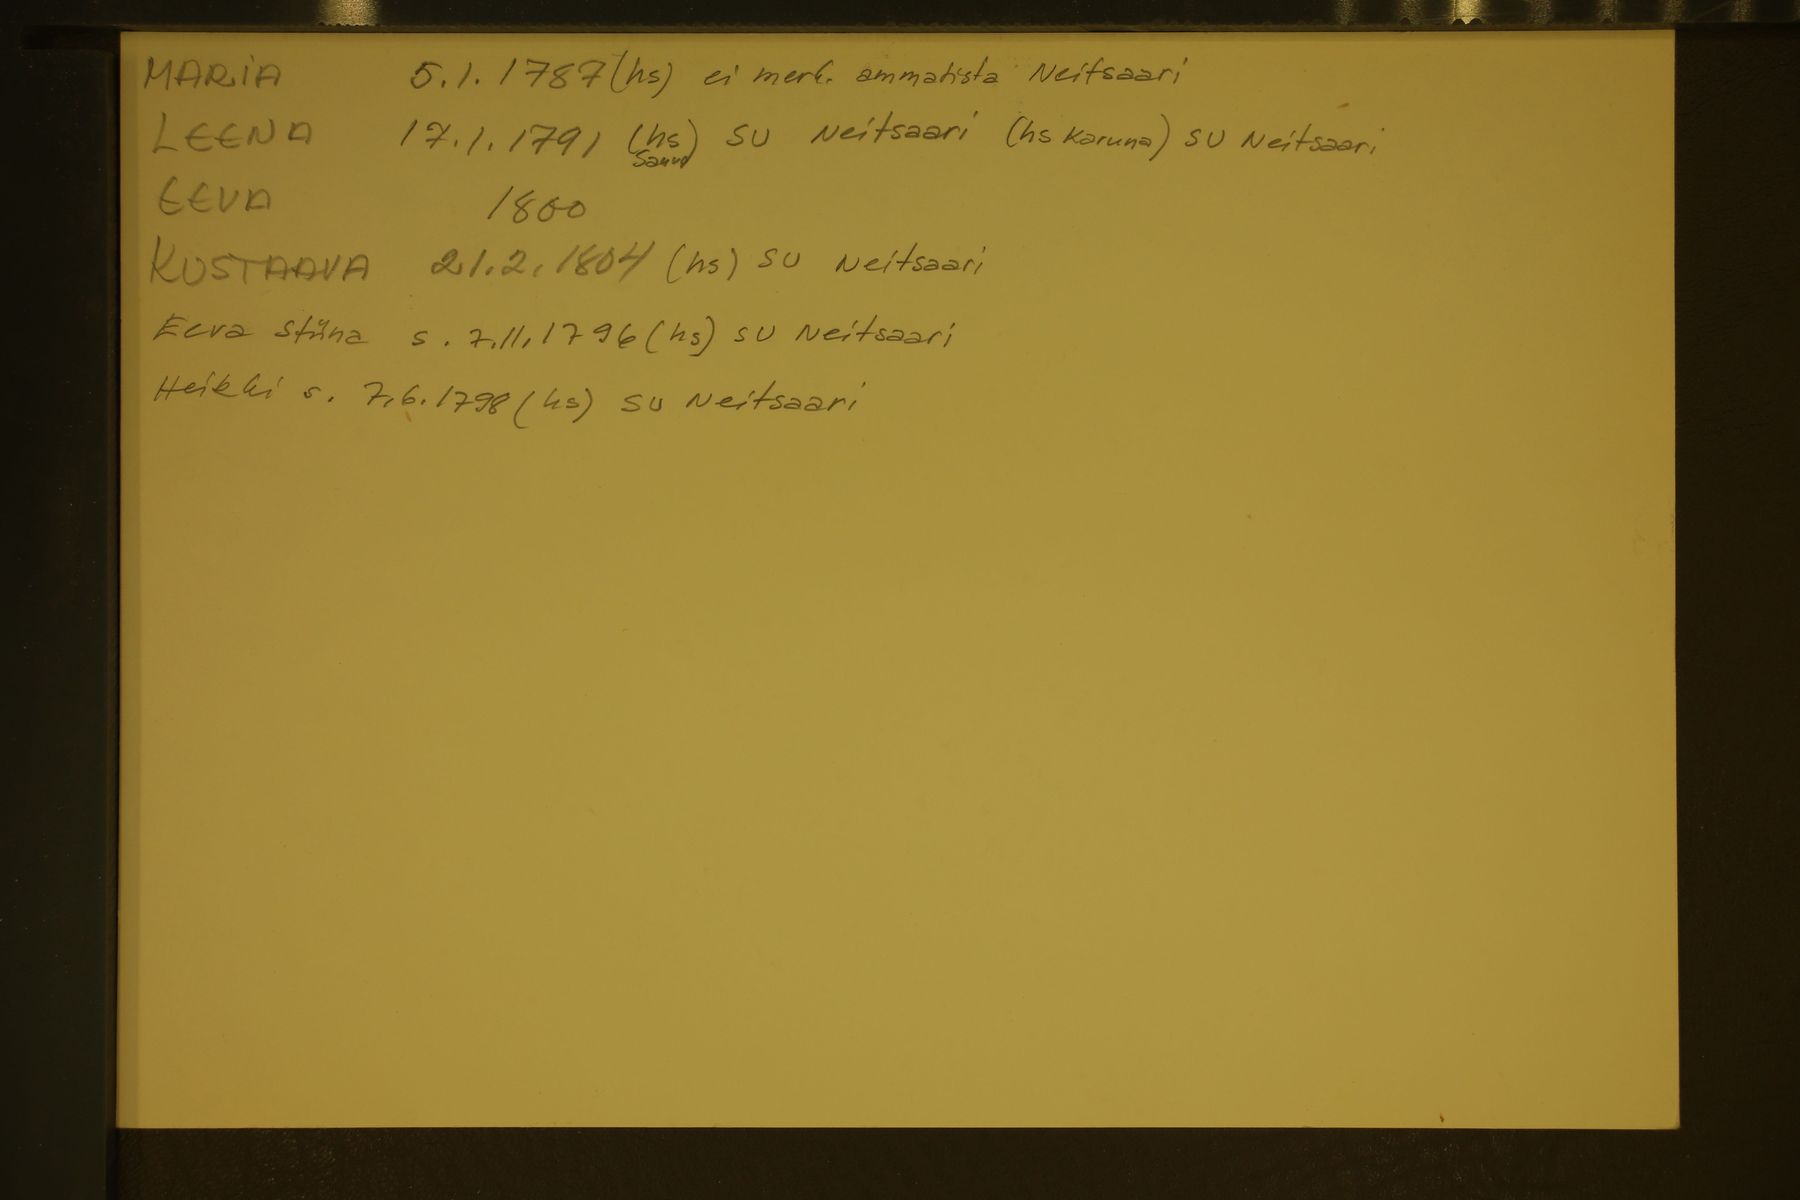 MARIA 5.1.1787 (hs) ei merk. ammatista Neitsaari
LEENA 17.1.1791 (hs) SU Neitsaari (hs Karuna) SU Neitsaari
Sauvo
EEVA 1800
KUSTAAVA 21.2.1804 (hs) SU Neitsaari
Eeva Stiina s. 7.11.1796 (hs) SU Neitsaari
Heikki s. 7.6.1798 (hs) SU Neitsaari